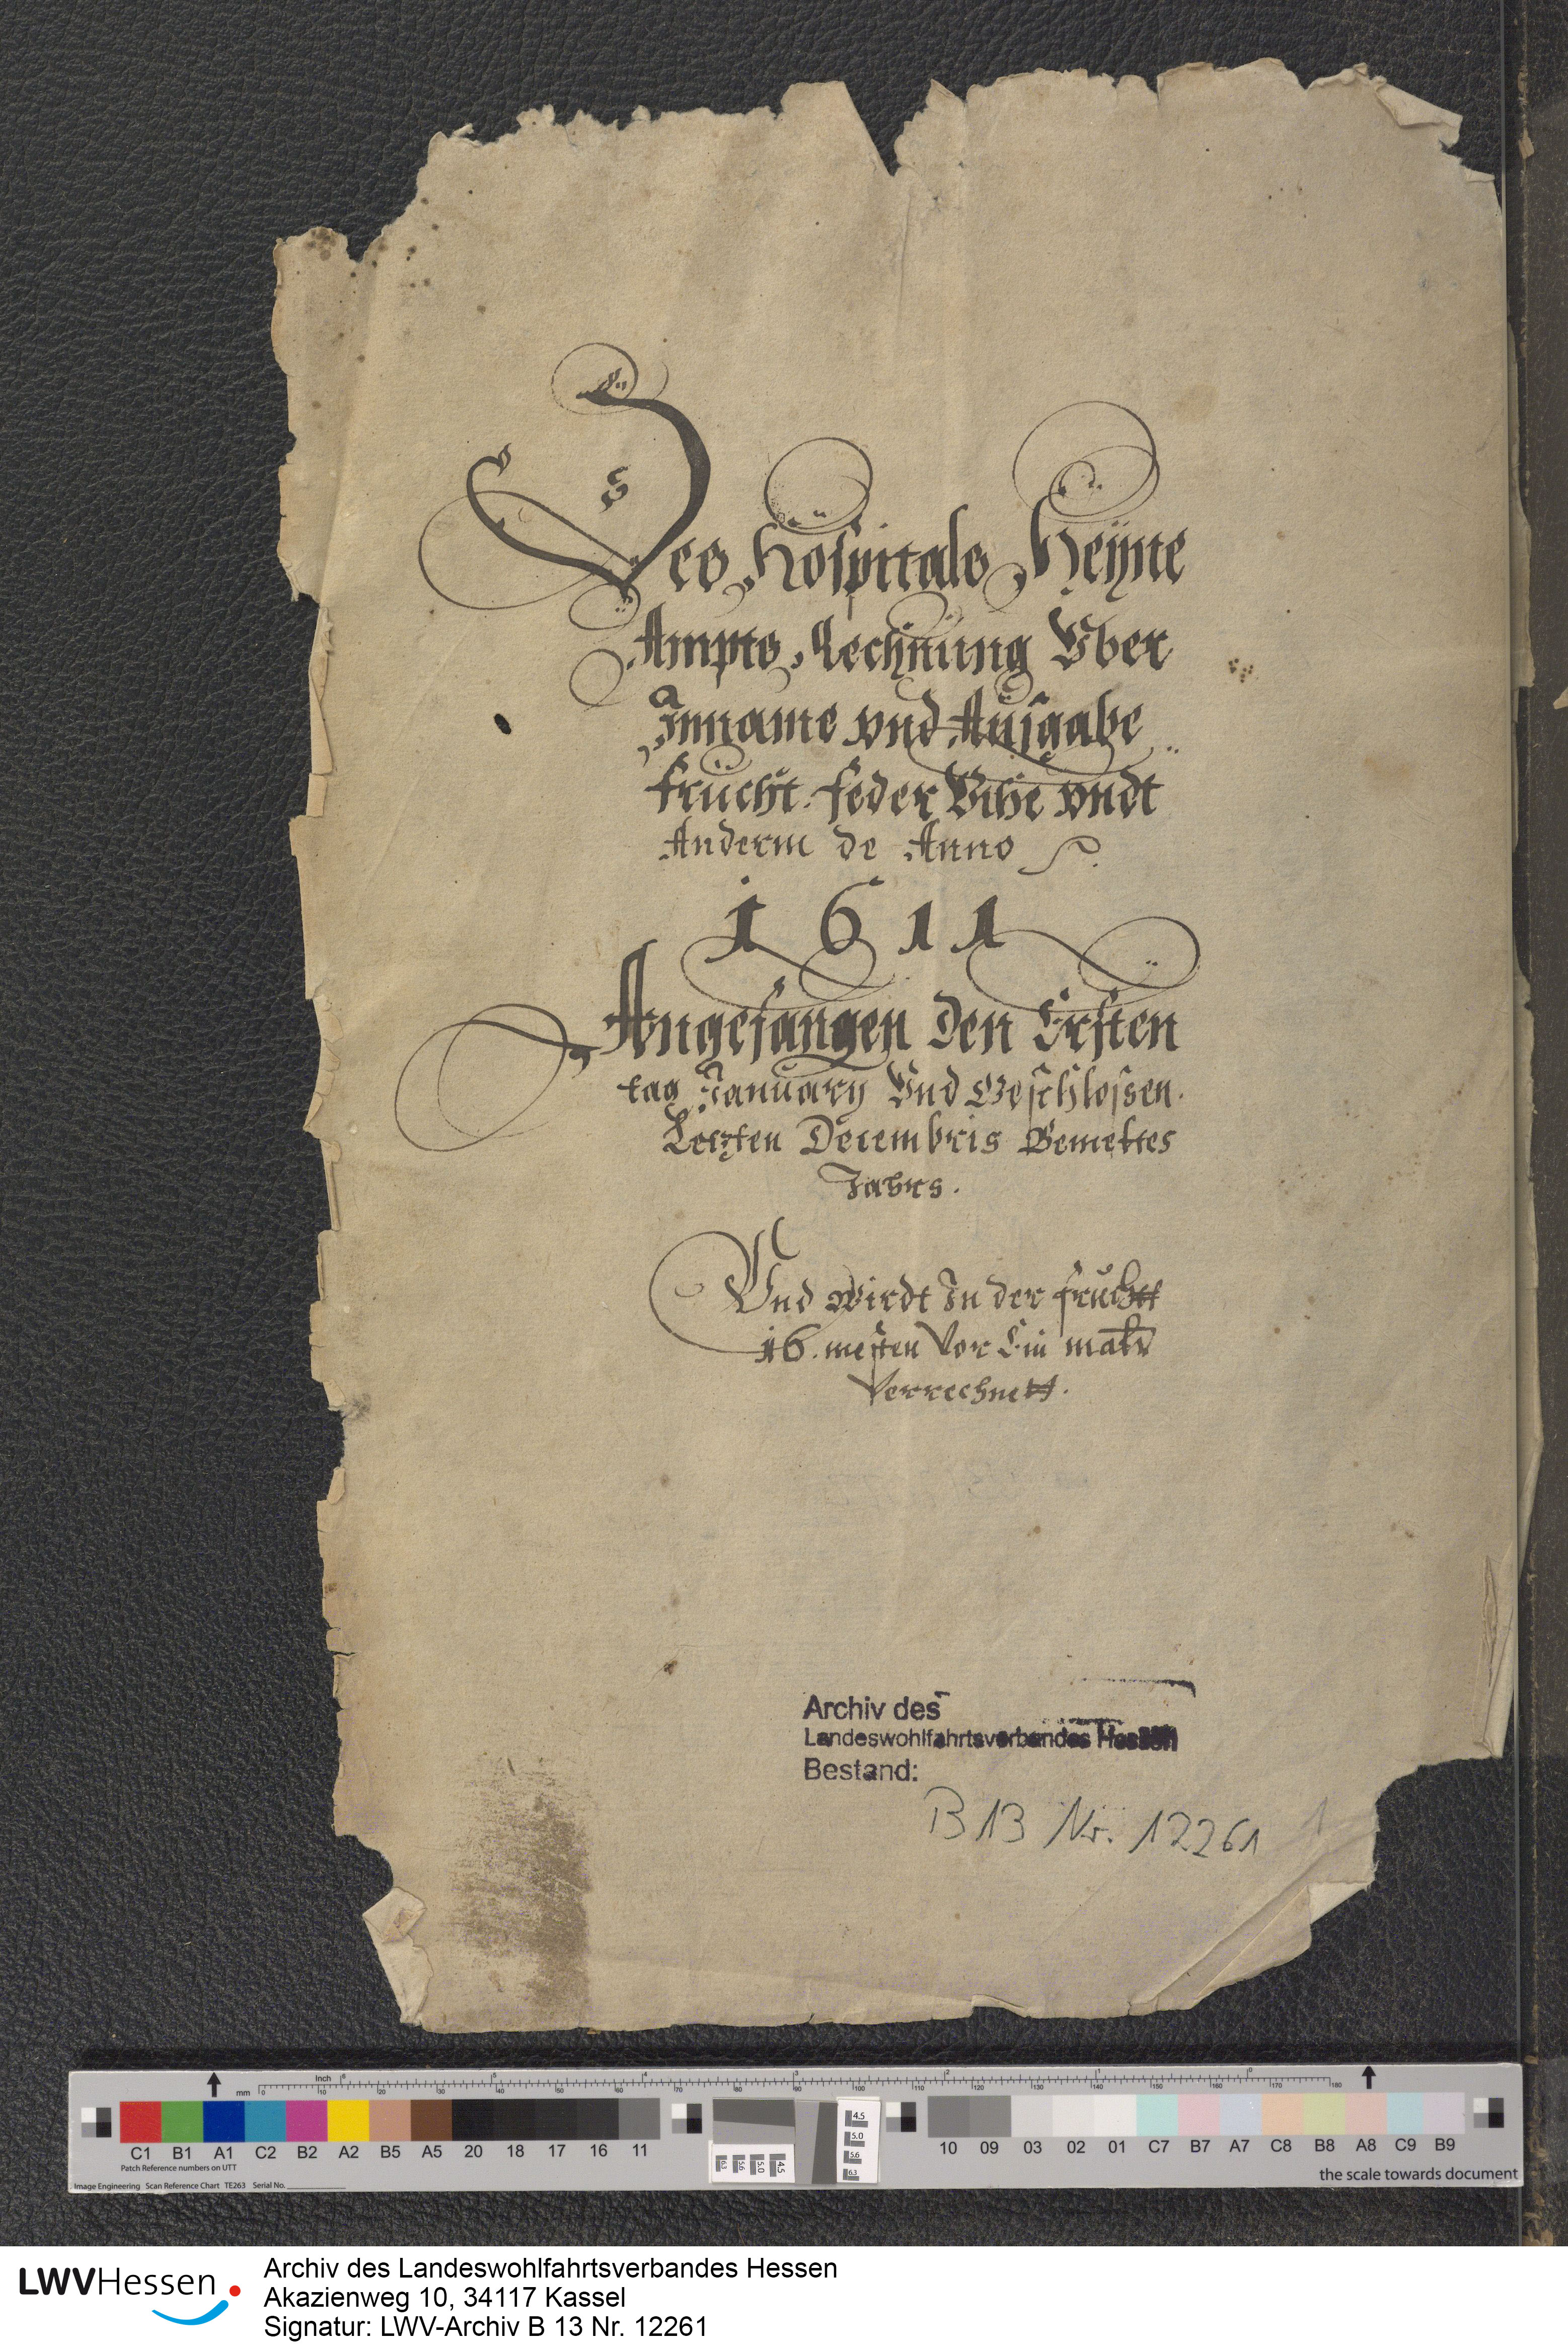 Des Hospitals Heÿne
Ampts Rechnung Vber
Inname vnd Außgabe
Frücht. Feder Vihe vndt
Anderm de Anno
1611
Angefangen den Ersten
tag January Vnd Geschloßen.
Letzten Decembris Bemeltes
Jahrs.
Vnd wirdt In der Fruchtt
16. mesten Vor Ein maltr
Verrechnett.
Archiv des
Landeswohlfahrtsverbandes Hessen
Bestand:
B 13 Nr. 12261 1
Inch 6 5 4 3 2 1 0
mm 0 10 20 30 40 50 60 70 80 90 100 110 120 130 140 150 160 170 180
C1 B1 A1 C2 B2 A2 B5 A5 20 18 17 16 11
6.3 5.6 5.0 4.5
4.5
5.0
5.6
6.3
10 09 03 02 01 C7 B7 A7 C8 B8 A8 C9 B9
Patch Reference numbers on UTT
Image Engineering Scan Reference Chart TE263 Serial No.
the scale towards document
LWVHessen
Archiv des Landeswohlfahrtsverbandes Hessen
Akazienweg 10, 34117 Kassel
Signatur: LWV-Archiv B 13 Nr. 12261